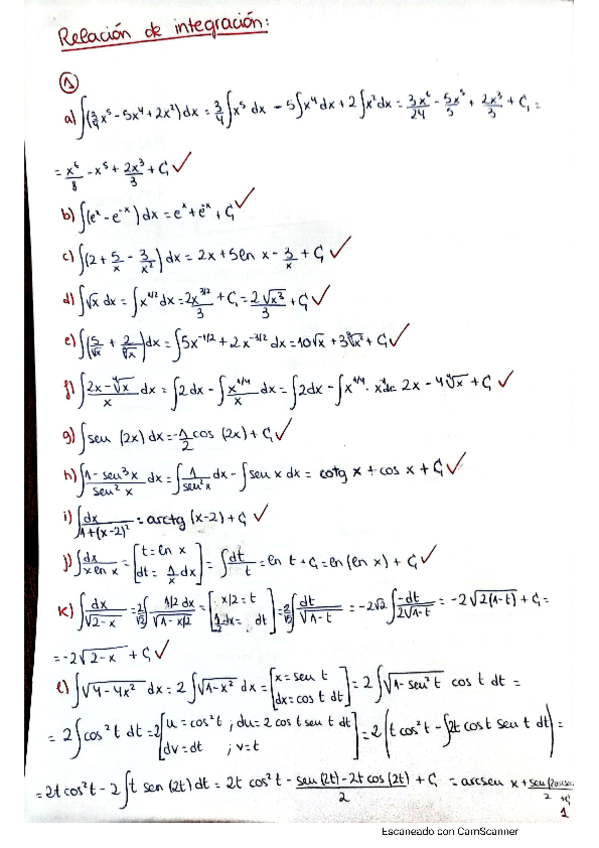 Relación de integración:
1
a) ∫(3/4 x⁵ - 5x⁴ + 2x²) dx = 3/4 ∫x⁵ dx - 5∫x⁴ dx + 2∫x² dx = 3x⁶/24 - 5x⁵/5 + 2x³/3 + C₁ =
= x⁶/8 - x⁵ + 2x³/3 + C₁ ✓
b) ∫(eˣ - e⁻ˣ) dx = eˣ + e⁻ˣ + C₁ ✓
c) ∫(2 + 5/x - 3/x²) dx = 2x + 5 ln x - 3/x + C₁ ✓
d) ∫√x dx = ∫x^1/2 dx = 2x^3/2 / 3 + C₁ = 2√x³ / 3 + C₁ ✓
e) ∫(5/√x + 2/ ) dx = ∫5x^-1/2 + 2x^-3/2 dx = 10√x + + C₁ ✓
f) ∫(2x - ⁴√x)/x dx = ∫2 dx - ∫x^1/4 / x dx = ∫2dx - ∫x^1/4 · 2x - 4⁴√x + C₁ ✓
g) ∫sen (2x) dx = -1/2 cos (2x) + C₁ ✓
h) ∫(1 - sen³x)/sen² x dx = ∫1/sen²x dx - ∫sen x dx = cotg x + cos x + C₁ ✓
i) ∫dx/(1+(x-2)²) = arctg (x-2) + C₁ ✓
j) ∫dx/(x ln x) = [t = ln x; dt = 1/x dx] = ∫dt/t = ln t + C₁ = ln (ln x) + C₁ ✓
k) ∫dx/√(2-x) = 2/√2 ∫(1/2 dx)/√(1-x/2) = [x/2 = t; 1/2 dx = dt] = 2/√2 ∫dt/√(1-t) = -2√2 ∫-dt/(2√(1-t)) = -2√(2(1-t)) + C₁ =
= -2√(2-x) + C₁ ✓
l) ∫√(4-4x²) dx = 2∫√(1-x²) dx = [x = sen t; dx = cos t dt] = 2∫√(1-sen²t) cos t dt =
= 2∫cos²t dt = 2[u = cos²t ; du = 2 cos t sen t dt; dv = dt ; v = t] = 2(t cos²t - ∫2t cos t sen t dt) =
= 2t cos²t - 2∫t sen (2t) dt = 2t cos²t - (sen (2t) - 2t cos (2t))/2 + C₁ = arcsen x +
1
Escaneado con CamScanner